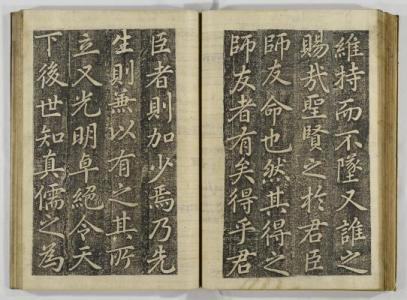 維持而不墜又誰之
賜哉聖賢之於君臣
師友命也然其得之
師友者有矣得乎君
臣者則加少焉乃先
生則兼以有之其所
立又光明卓絕令天
下後世知真儒之為